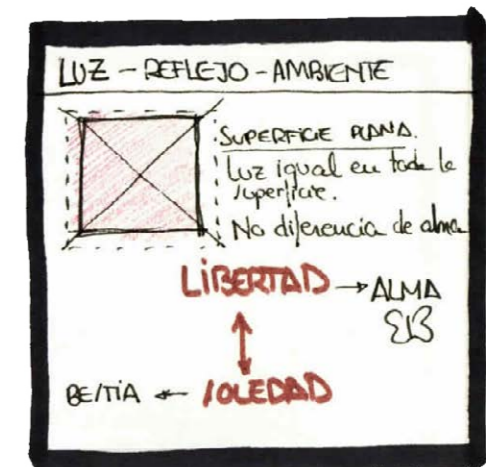 LUZ - REFLEJO - AMBIENTE
SUPERFICIE PLANA.
Luz igual en toda la
superficie.
No diferencia de alma
LIBERTAD → ALMA
BESTIA ← SOLEDAD